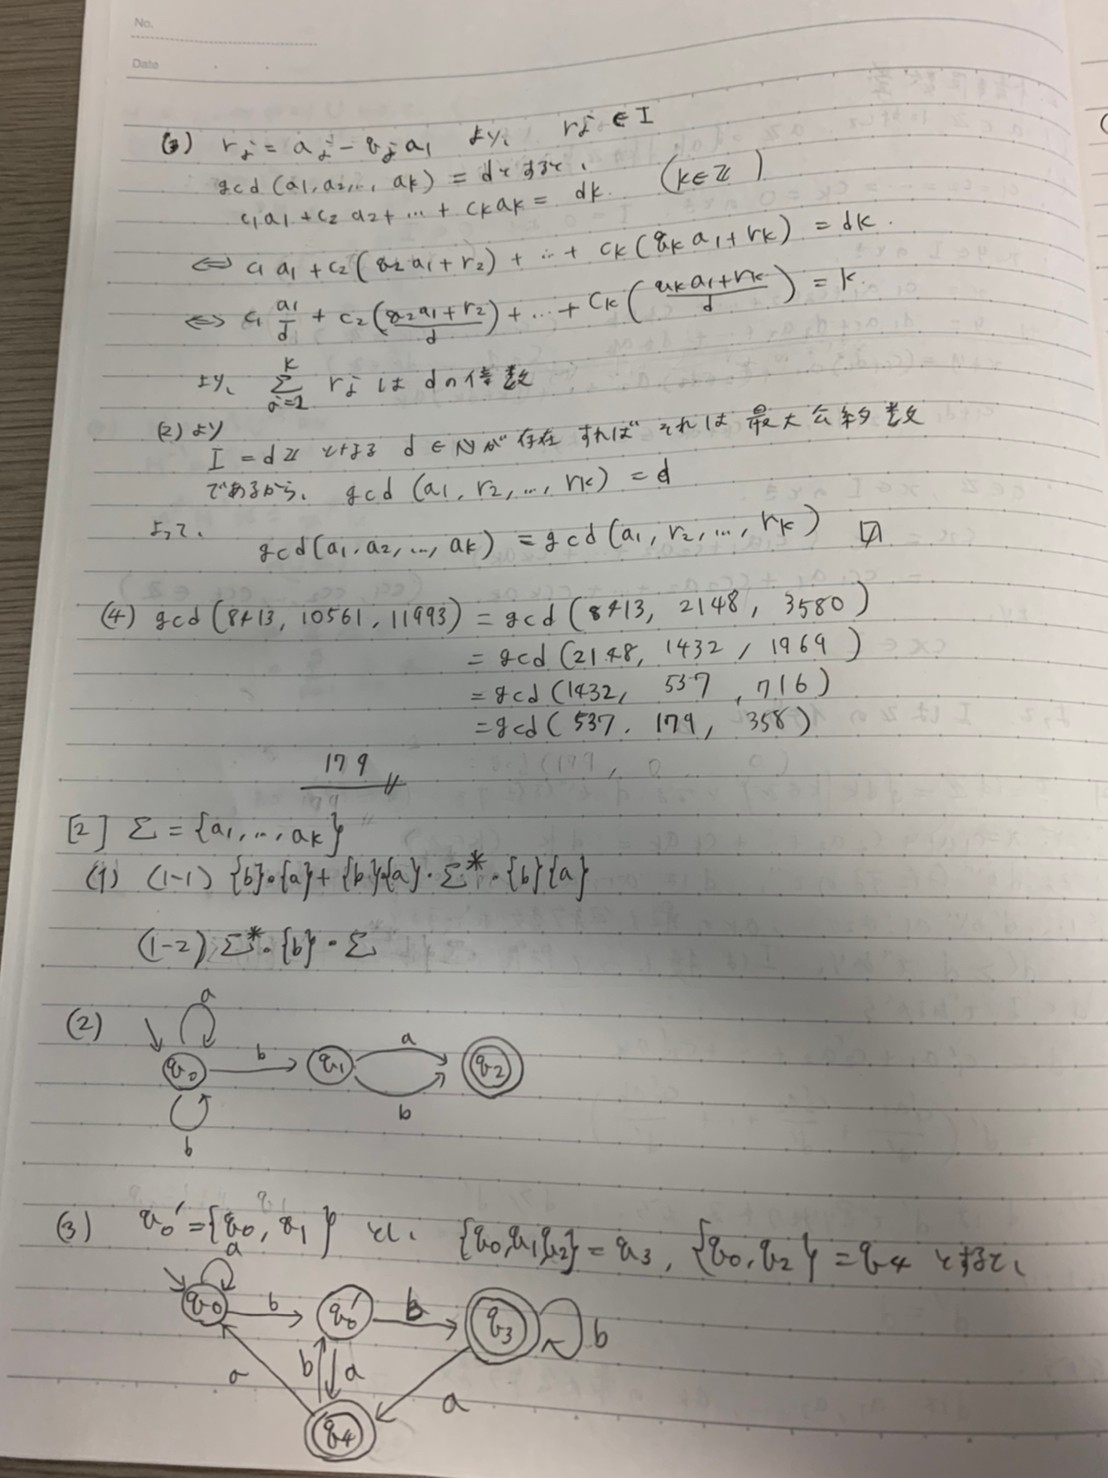 No.
Date
(3) rⱼ = aⱼ - qⱼa₁ より、 rⱼ ∈ I
gcd (a₁, a₂, ..., aₖ) = d とすると、
c₁a₁ + c₂a₂ + ... + cₖaₖ = dk. (k∈ℤ)
⇔ c₁a₁ + c₂(q₂a₁+r₂) + ... + cₖ(qₖa₁+rₖ) = dk.
⇔ c₁ a₁/d + c₂((q₂a₁+r₂)/d) + ... + cₖ((qₖa₁+rₖ)/d) = k.
より、 Σ rⱼ は dの倍数
(2)より
I = dℤ となる d∈ℕが存在すれば それは最大公約数
であるから、 gcd (a₁, r₂, ..., rₖ) = d
よって、
gcd(a₁, a₂, ..., aₖ) = gcd(a₁, r₂, ..., rₖ)
(4) gcd (8413, 10561, 11993) = gcd (8413, 2148, 3580)
= gcd (2148, 1432, 1969)
= gcd (1432, 537, 716)
= gcd (537, 179, 358)
179
[2] Σ = {a₁, ..., aₖ}
(1) (1-1) {b}・{a} + {b}{a}・Σ*・{b}{a}
(1-2) Σ*・{b}・Σ
(2) a
q₀ b q₁ a q₂
b
b
(3) q₀' = {q₀, q₁} とし、 {q₀,q₁,q₂} = q₃, {q₀, q₂} = q₄ とすると、
a
q₀ b q₀' b q₃ b
a b a a
q₄